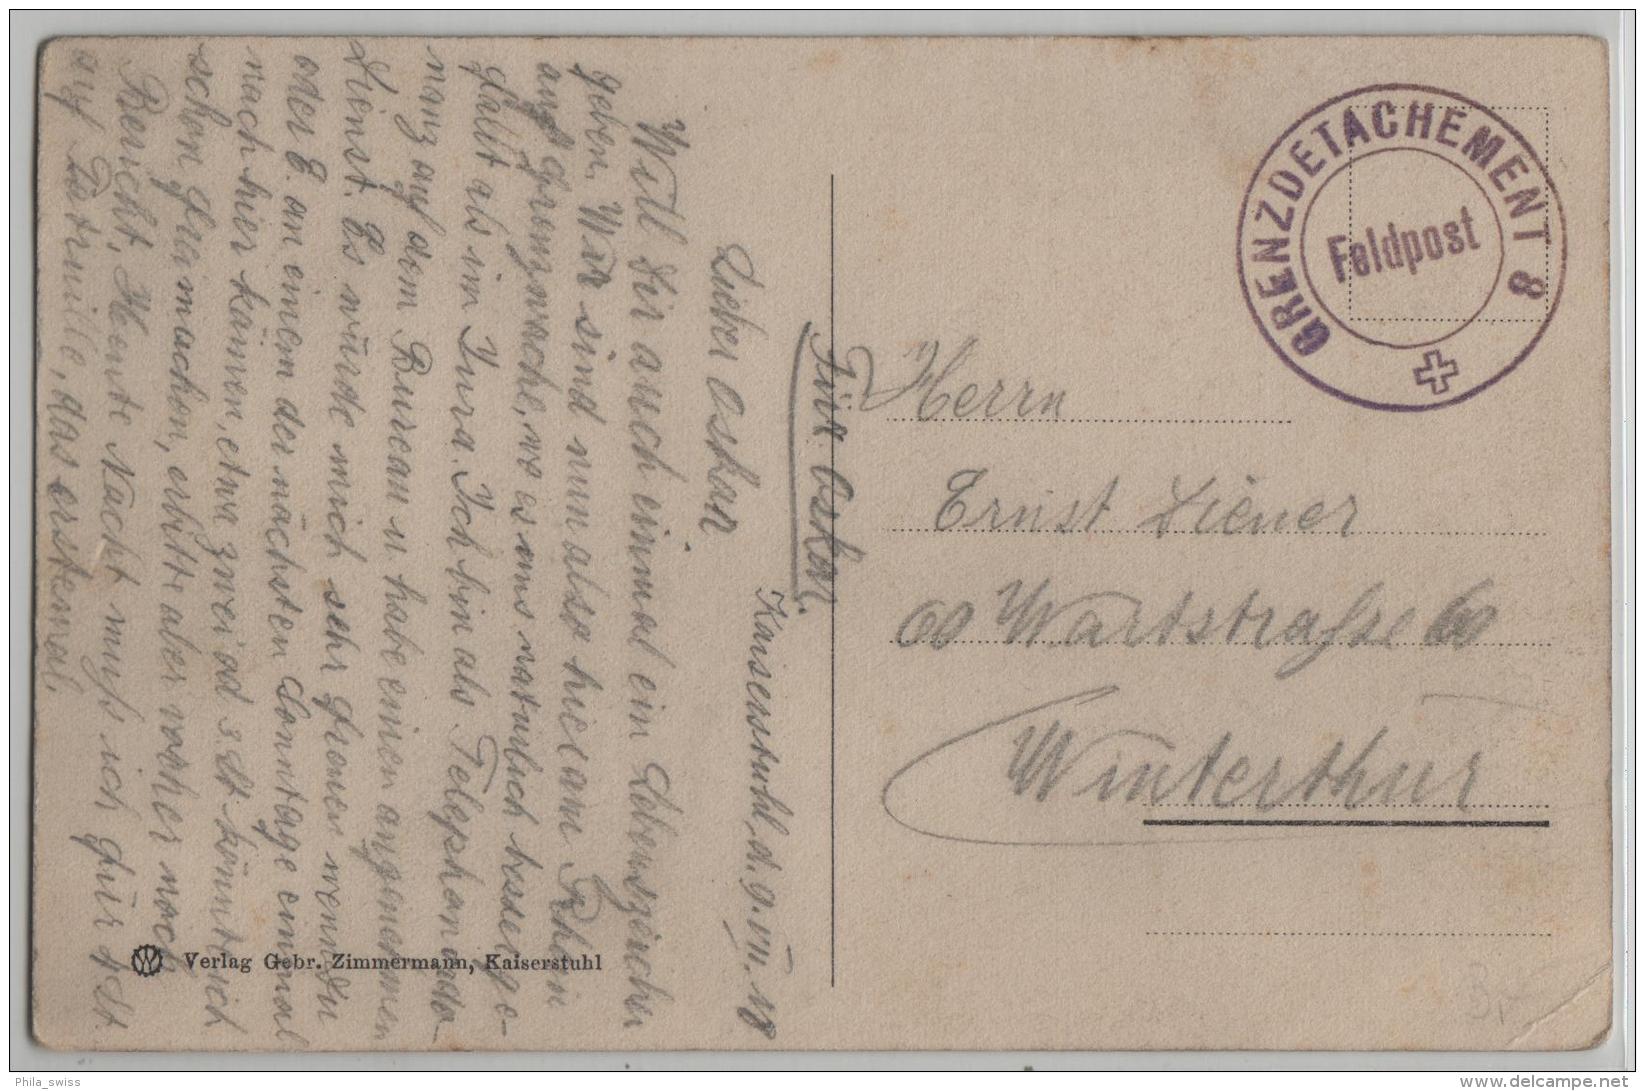 Kaiserstuhl, d. 9. VII. 18
Lieber Oskar
Will dir auch einmal ein Lebenszeichen
geben. Wir sind nun also hier am Rhein
auf Grenzwache, wo es uns natürlich besser ge-
fällt als im Jura. Ich bin als Telephonordo-
nanz auf dem Bureau u. habe einen angenehmen
Dienst. Es würde mich sehr freuen wenn du
oder E. an einem der nächsten Sonntage einmal
nach hier kämen, etwa zwei od 3 St könnte ich
schon frei machen, erbitte aber vorher noch
Bericht, Heute Nacht muss ich für 4 St.
auf Patruille, das erstemal.
Für Oskar.
GRENZDETACHEMENT 8
Feldpost
Herrn
Ernst Diener
60 Wartstrasse 60
Winterthur
Verlag Gebr. Zimmermann, Kaiserstuhl
Phila_swiss
delcampe.net